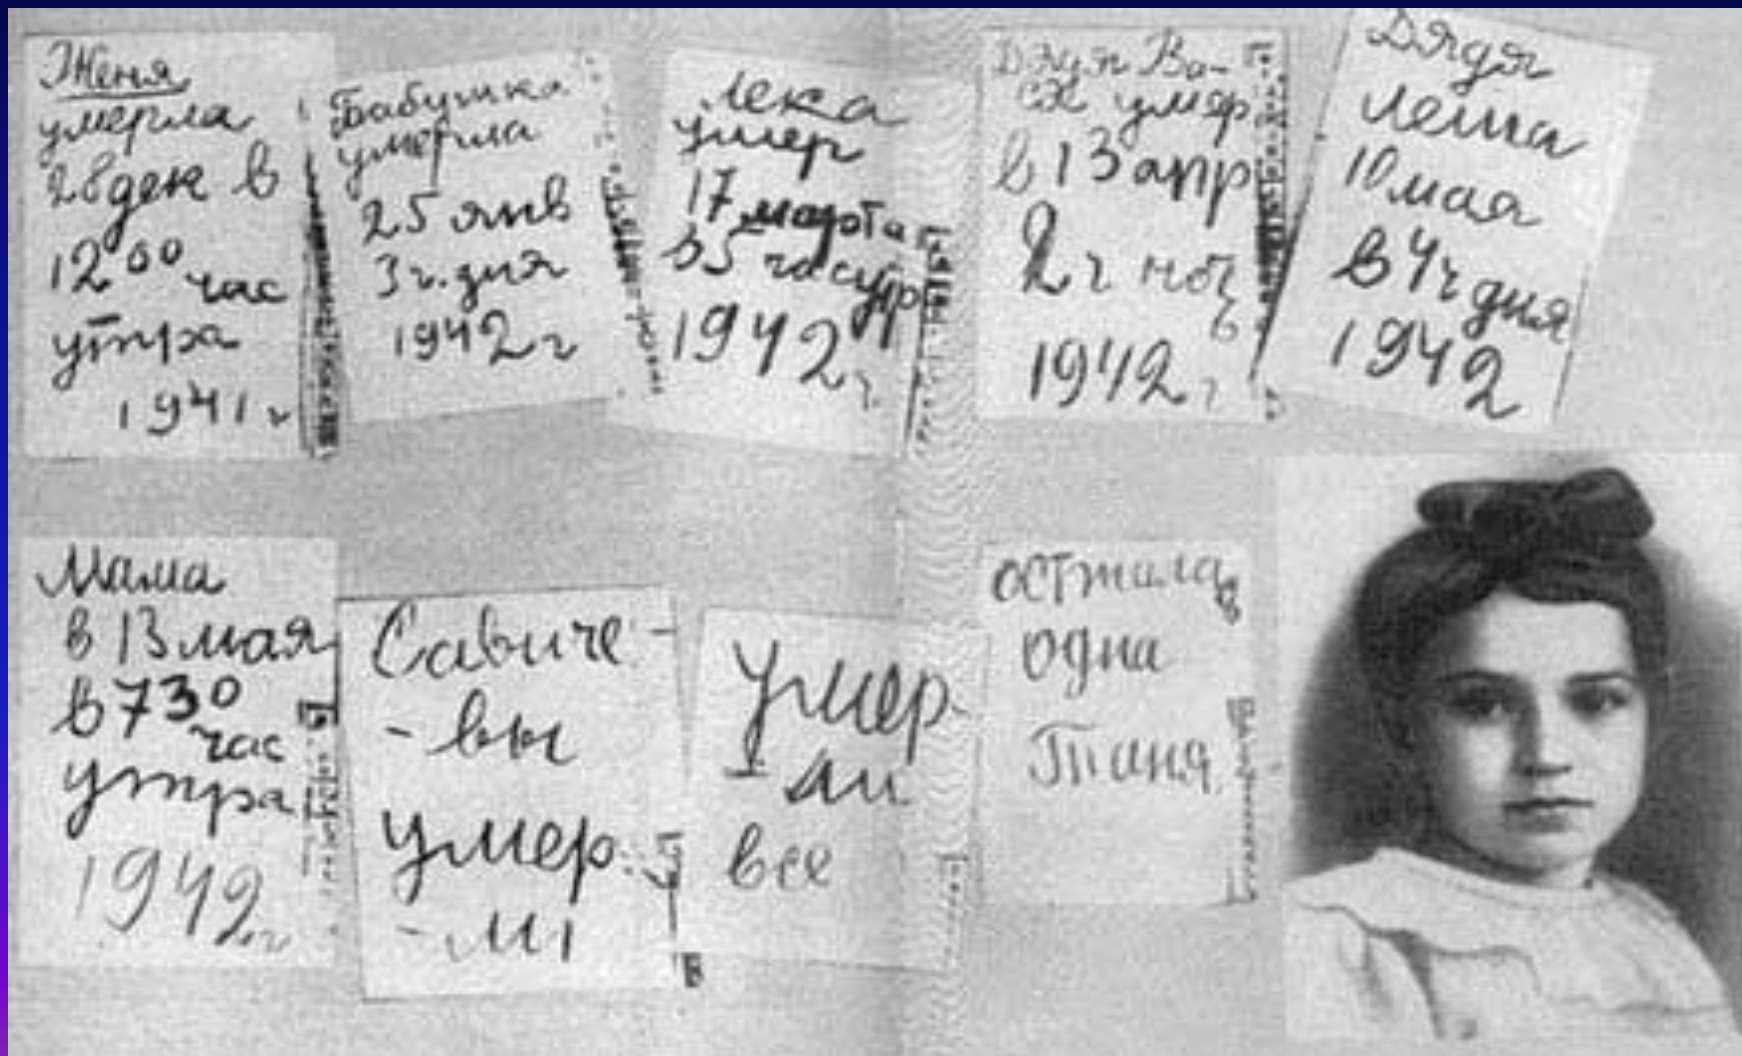 Женя
умерла
28 дек в
12 00 час
утра
1941 г
Бабушка
умерла
25 янв
3 ч. дня
1942 г
Лека
умер
17 марта
в 5 час утр
1942 г
Дядя Ва-
ся умер
в 13 апр
2 ч ноч
ь
1942 г
Дядя
Леша
10 мая
в 4 ч дня
1942
Мама
в 13 мая
в 7 30
час
утра
1942 г
Савиче-
- вы
умер
- ли
Умер-
- ли
все
осталась
одна
Таня